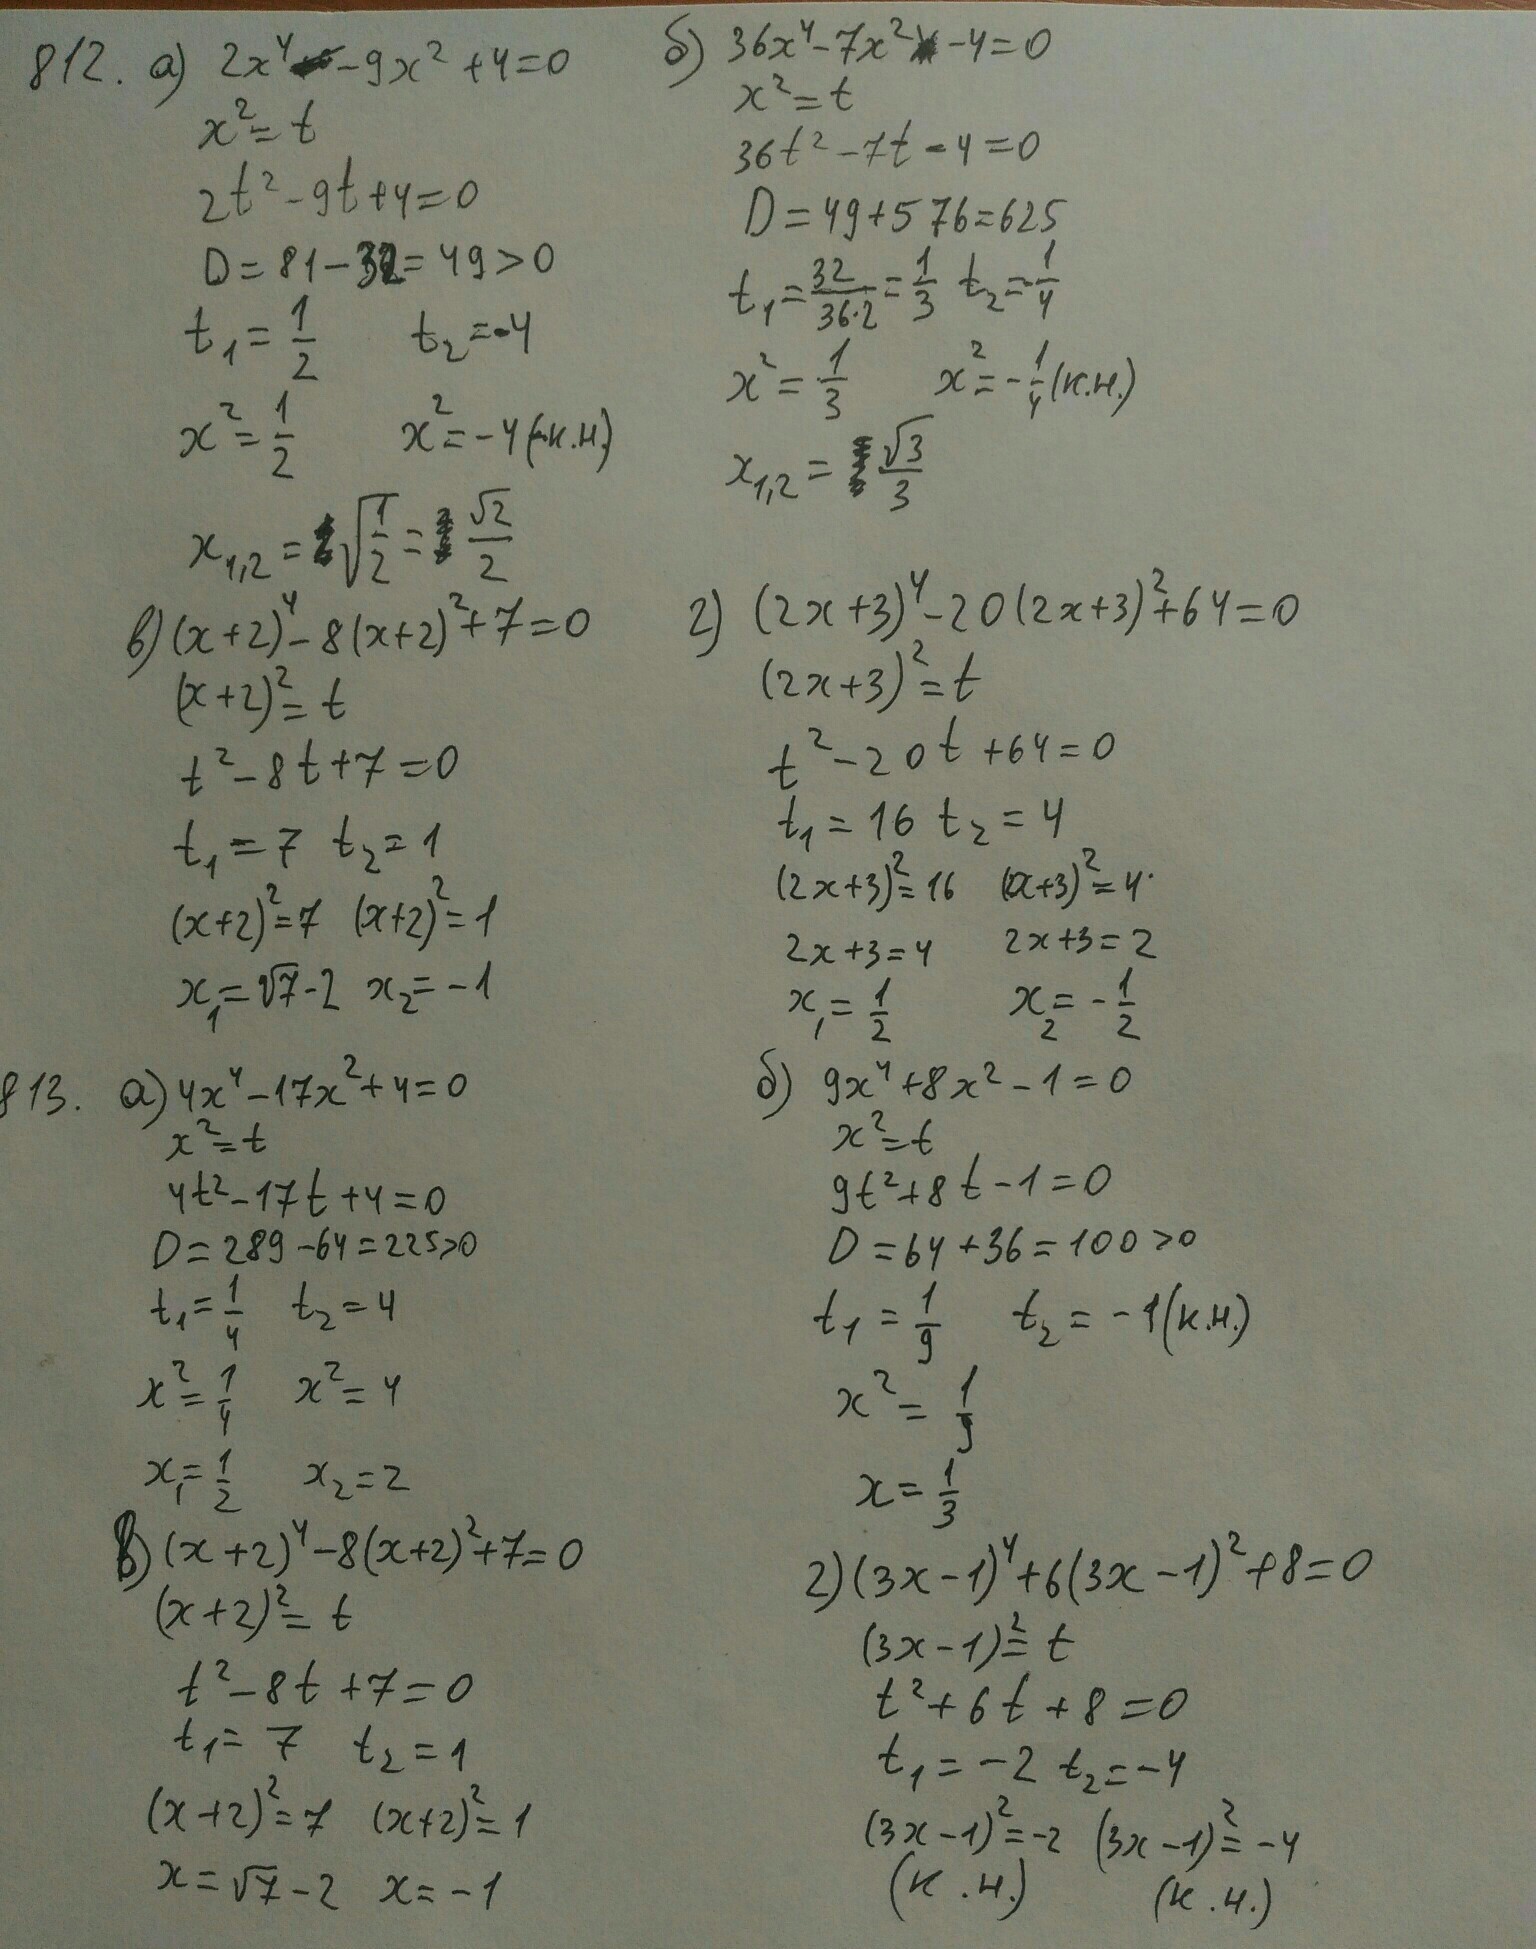 812. а) 2x⁴ -9x² +4=0
x²=t
2t²-9t+4=0
D=81-32=49>0
t₁=1/2 t₂=-4
x²=1/2 x²=-4(к.н.)
x₁,₂=√1/2=√2/2
б) 36x⁴-7x² -4=0
x²=t
36t²-7t-4=0
D=49+576=625
t₁=32/36·2=1/3 t₂=-1/4
x²=1/3 x²=-1/4(к.н.)
x₁,₂=√3/3
в) (x+2)⁴-8(x+2)²+7=0
(x+2)²=t
t²-8t+7=0
t₁=7 t₂=1
(x+2)²=7 (x+2)²=1
x₁=√7-2 x₂=-1
г) (2x+3)⁴-20(2x+3)²+64=0
(2x+3)²=t
t²-20t+64=0
t₁=16 t₂=4
(2x+3)²=16 (2x+3)²=4
2x+3=4 2x+3=2
x₁=1/2 x₂=-1/2
813. а) 4x⁴-17x²+4=0
x²=t
4t²-17t+4=0
D=289-64=225>0
t₁=1/4 t₂=4
x²=1/4 x²=4
x₁=1/2 x₂=2
б) 9x⁴+8x²-1=0
x²=t
9t²+8t-1=0
D=64+36=100>0
t₁=1/9 t₂=-1(к.н.)
x²=1/9
x=1/3
в) (x+2)⁴-8(x+2)²+7=0
(x+2)²=t
t²-8t+7=0
t₁=7 t₂=1
(x+2)²=7 (x+2)²=1
x=√7-2 x=-1
г) (3x-1)⁴+6(3x-1)²+8=0
(3x-1)²=t
t²+6t+8=0
t₁=-2 t₂=-4
(3x-1)²=-2 (3x-1)²=-4
(к.н.) (к.н.)